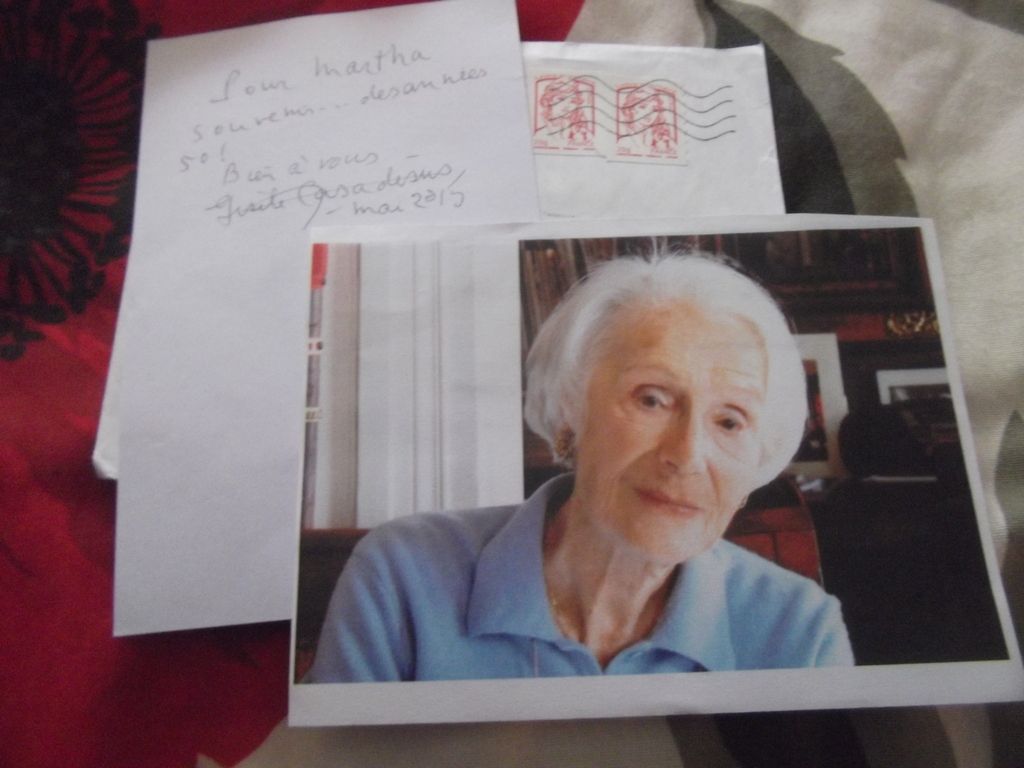 Pour Martha
souvenir... des années
50!
Bien à vous
Gisèle Casadesus
- mai 2015